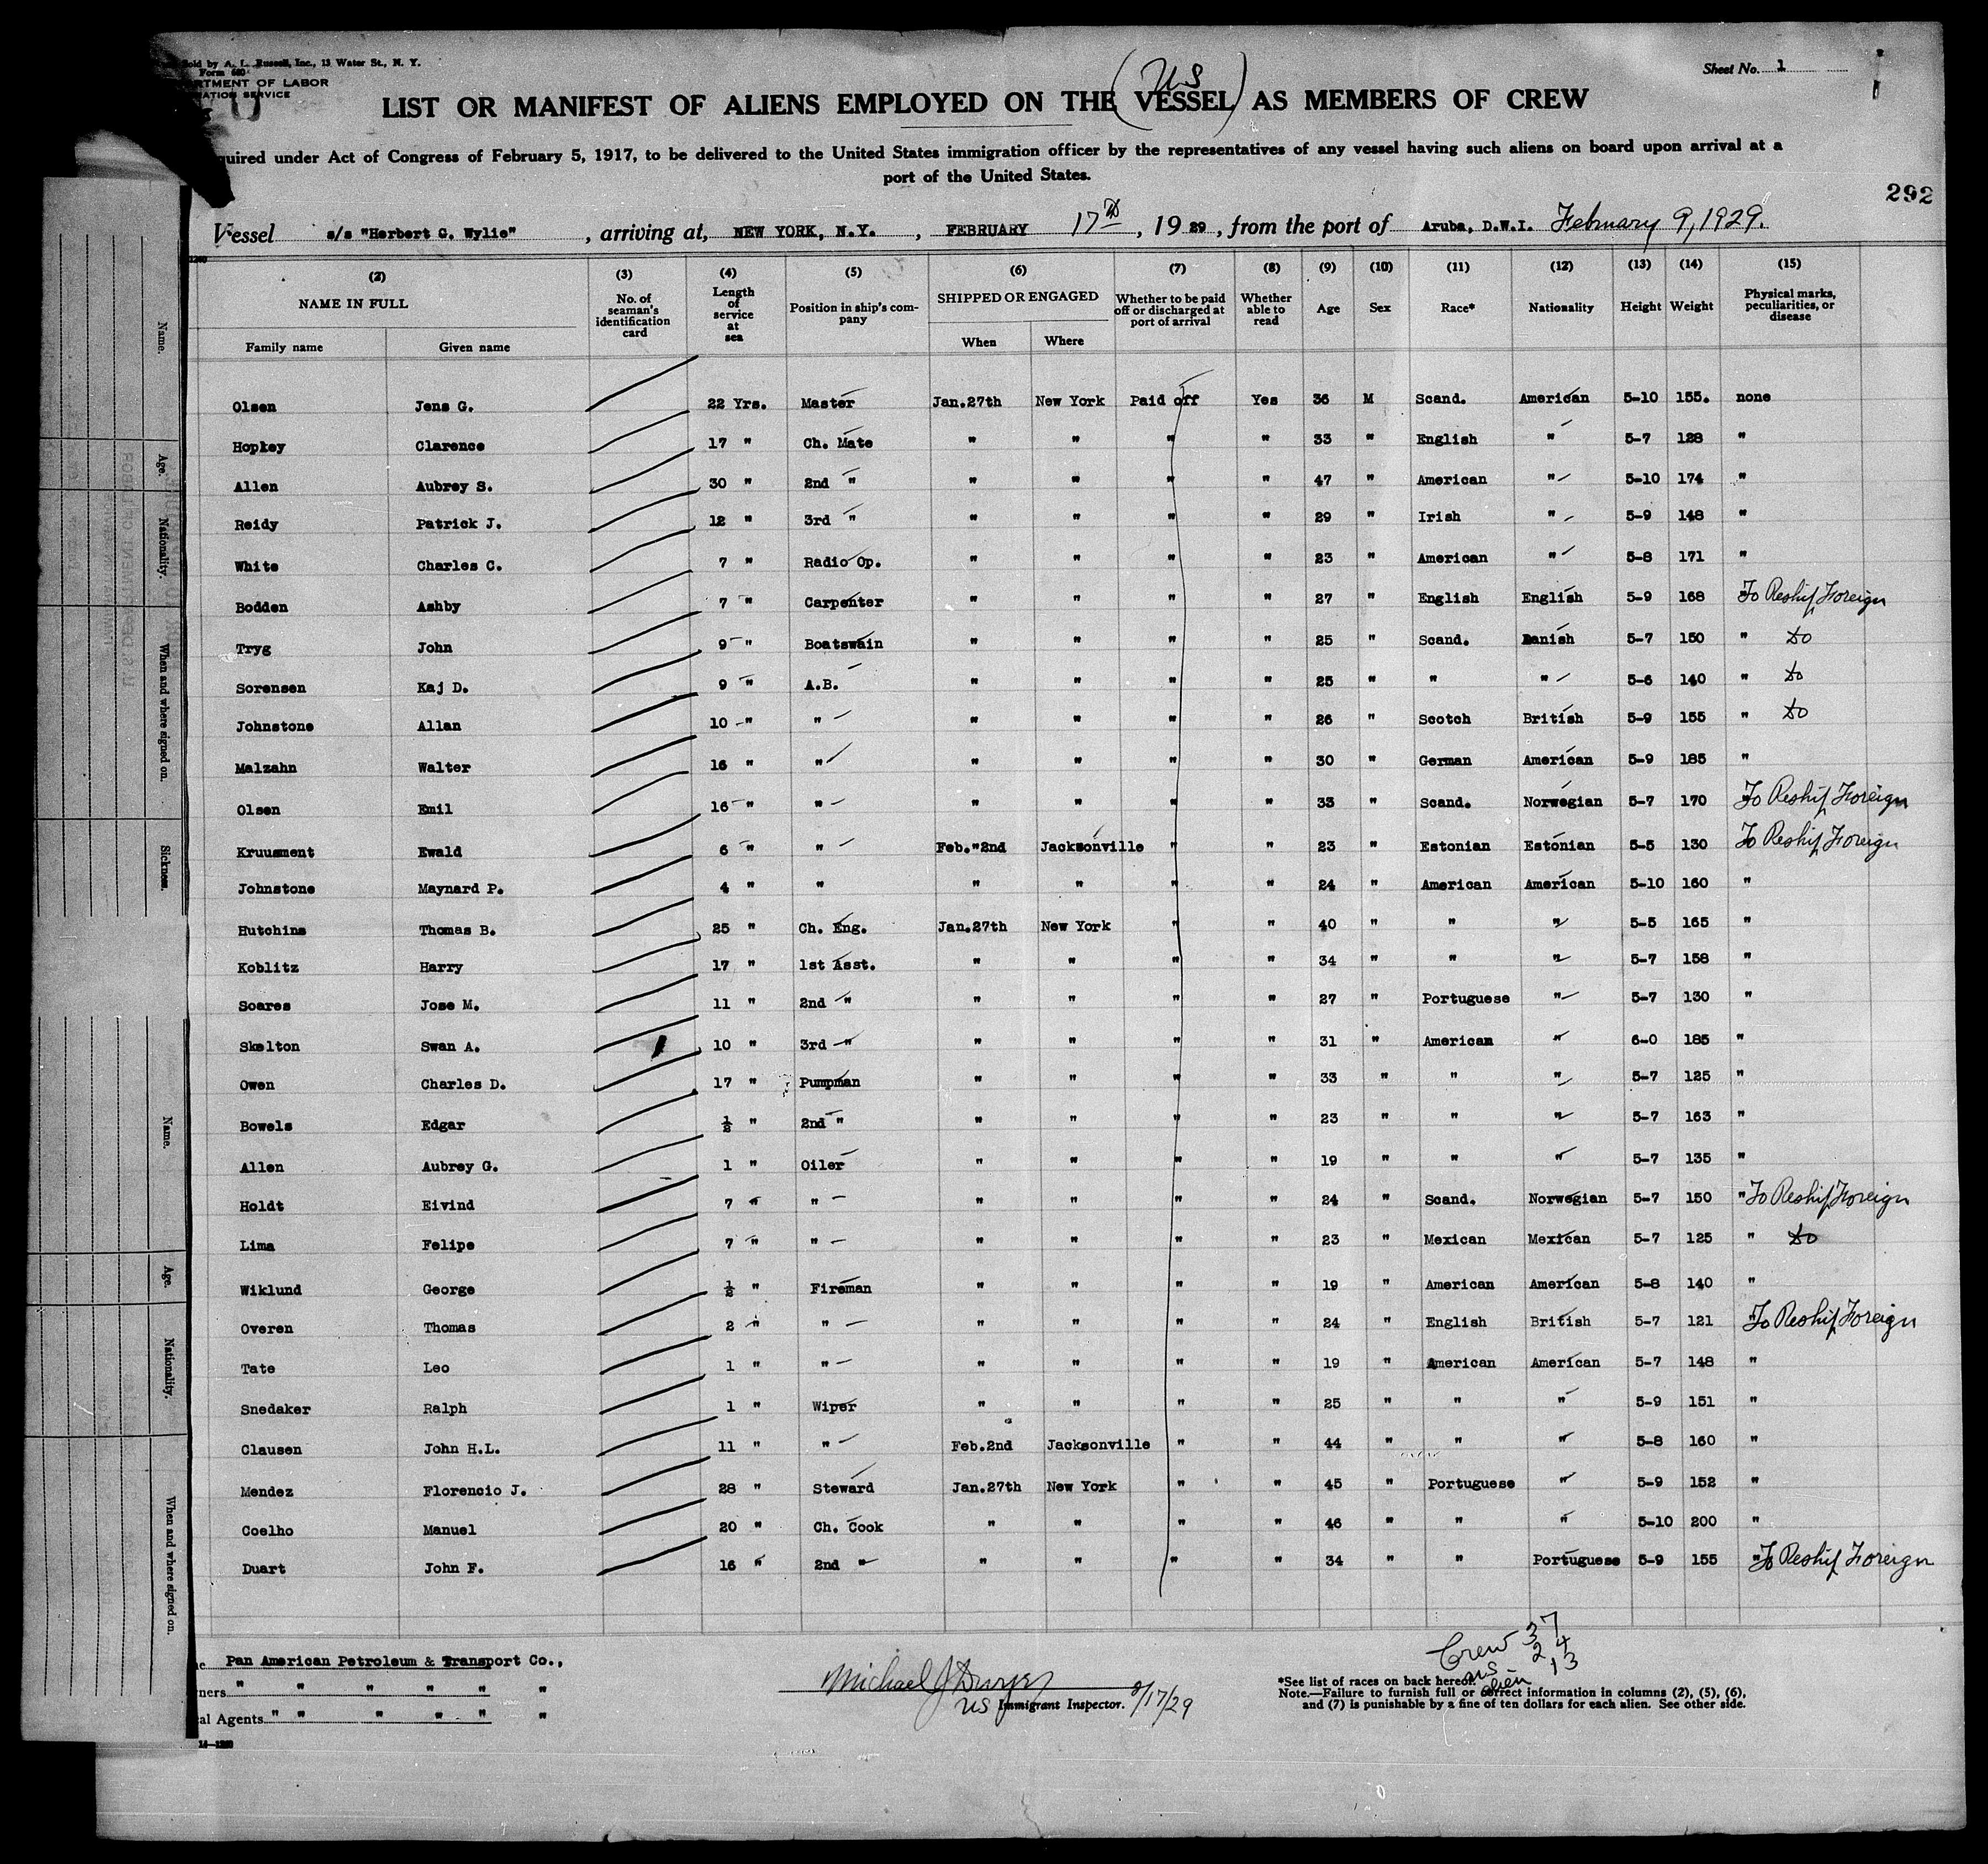 Sold by A. L. Russell, Inc., 13 Water St., N. Y.
Form 680
DEPARTMENT OF LABOR
Sheet No. 1
(US)
LIST OR MANIFEST OF ALIENS EMPLOYED ON THE VESSEL AS MEMBERS OF CREW
quired under Act of Congress of February 5, 1917, to be delivered to the United States immigration officer by the representatives of any vessel having such aliens on board upon arrival at a
port of the United States.
292
Vessel s/s "Herbert G. Wylie", arriving at, NEW YORK, N.Y., FEBRUARY 17th, 1929, from the port of Aruba, D.W.I. February 9, 1929.
(2) NAME IN FULL Family name Given name (3) No. of seaman's identification card (4) Length of service at sea (5) Position in ship's company (6) SHIPPED OR ENGAGED When Where (7) Whether to be paid off or discharged at port of arrival (8) Whether able to read (9) Age (10) Sex (11) Race* (12) Nationality (13) Height (14) Weight (15) Physical marks, peculiarities, or disease
Olsen Jens G. 22 Yrs. Master Jan.27th New York Paid off Yes 36 M Scand. American 5-10 155. none
Hopkey Clarence 17 " Ch. Mate " " " " 33 " English " 5-7 128 "
Allen Aubrey S. 30 " 2nd " " " " " 47 " American " 5-10 174 "
Reidy Patrick J. 12 " 3rd " " " " " 29 " Irish " 5-9 148 "
White Charles C. 7 " Radio Op. " " " " 23 " American " 5-8 171 "
Bodden Ashby 7 " Carpenter " " " " 27 " English English 5-9 168 " To Reship Foreign
Tryg John 9 " Boatswain " " " " 25 " Scand. Danish 5-7 150 " do
Sorensen Kaj D. 9 " A.B. " " " " 25 " " " 5-6 140 " do
Johnstone Allan 10 " " " " " " 26 " Scotch British 5-9 155 " do
Malzahn Walter 16 " " " " " " 30 " German American 5-9 185 "
Olsen Emil 16 " " " " " " 33 " Scand. Norwegian 5-7 170 " To Reship Foreign
Kruusment Ewald 6 " " Feb."2nd Jacksonville " " 23 " Estonian Estonian 5-5 130 To Reship Foreign
Johnstone Maynard P. 4 " " " " " " 24 " American American 5-10 160 "
Hutchins Thomas B. 25 " Ch. Eng. Jan.27th New York " " 40 " " " 5-5 165 "
Koblitz Harry 17 " 1st Asst. " " " " 34 " " " 5-7 158 "
Soares Jose M. 11 " 2nd " " " " " 27 " Portuguese " 5-7 130 "
Skelton Swan A. 10 " 3rd " " " " " 31 " American " 6-0 185 "
Owen Charles D. 17 " Pumpman " " " " 33 " " " 5-7 125 "
Bowels Edgar ½ " 2nd " " " " " 23 " " " 5-7 163 "
Allen Aubrey G. 1 " Oiler " " " " 19 " " " 5-7 135 "
Holdt Eivind 7 " " " " " " 24 " Scand. Norwegian 5-7 150 " To Reship Foreign
Lima Felipe 7 " " " " " " 23 " Mexican Mexican 5-7 125 " do
Wiklund George ½ " Fireman " " " " 19 " American American 5-8 140 "
Overen Thomas 2 " " " " " " 24 " English British 5-7 121 " To Reship Foreign
Tate Leo 1 " " " " " " 19 " American American 5-7 148 "
Snedaker Ralph 1 " Wiper " " " " 25 " " " 5-9 151 "
Clausen John H.L. 11 " " Feb.2nd Jacksonville " " 44 " " " 5-8 160 "
Mendez Florencio J. 28 " Steward Jan.27th New York " " 45 " Portuguese " 5-9 152 "
Coelho Manuel 20 " Ch. Cook " " " " 46 " " " 5-10 200 "
Duart John F. 16 " 2nd " " " " " 34 " " Portuguese 5-9 155 " To Reship Foreign
Crew 37
US 24
alien 13
Pan American Petroleum & Transport Co.,
ners " " " " " "
al Agents " " " " " "
14—1250
Michael J Dwyer
US Immigrant Inspector. 2/17/29
*See list of races on back hereof.
Note.—Failure to furnish full or correct information in columns (2), (5), (6),
and (7) is punishable by a fine of ten dollars for each alien. See other side.
Name.
Age.
Nationality.
When and where signed on.
Sickness.
Name.
Age.
Nationality.
When and where signed on.